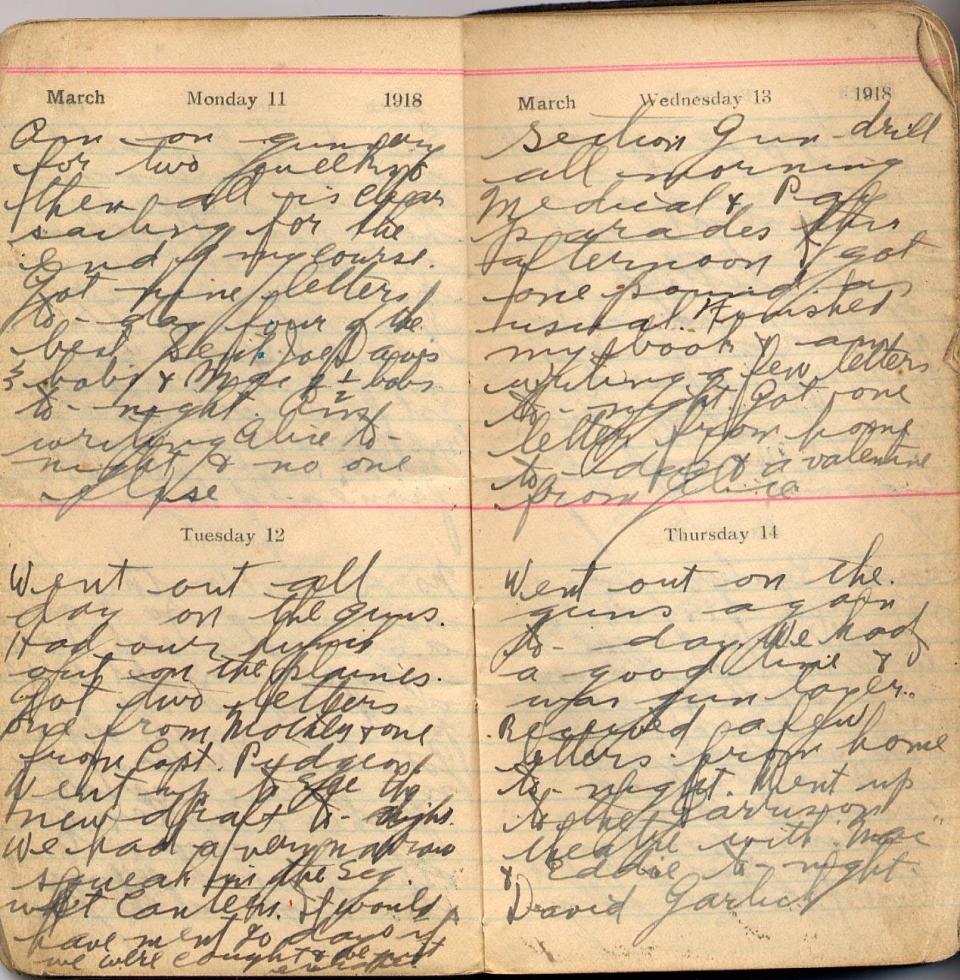 March Monday 11 1918
Am on gunnery
for two weeks &
then all is clear
sailing for the
end of my course.
Got nine letters
to-day four of the
best. Sent Joe Daves
3 bobs & Mac 2 1/2 bobs
to-night. Am
writing Alice to-
night & no one
else
Tuesday 12
Went out all
day on the guns.
Had our
out on the plaines.
Got two letters
one from Mother & one
from Capt. Pudgeon
Went up to see the
new draft to-night.
We had a very narrow
squeak in the Seg.
wet Canteen. It would
have ment 80 days if
we were caught & we just

March Wednesday 13 1918
Section Gun-drill
all morning
Medical & Pay
parades this
afternoon I got
one pound as
usual. Finished
my book & am
writing a few letters
to-night. Got one
letter from home
to-day & a valentine
from Alice
Thursday 14
Went out on the
guns again
to-day. We had
a good time &
was gun layer..
Received a few
letters from home
to-night. Went up
to the Garrison
theatre with "Mac"
& Eddie to-night.
David Garlick